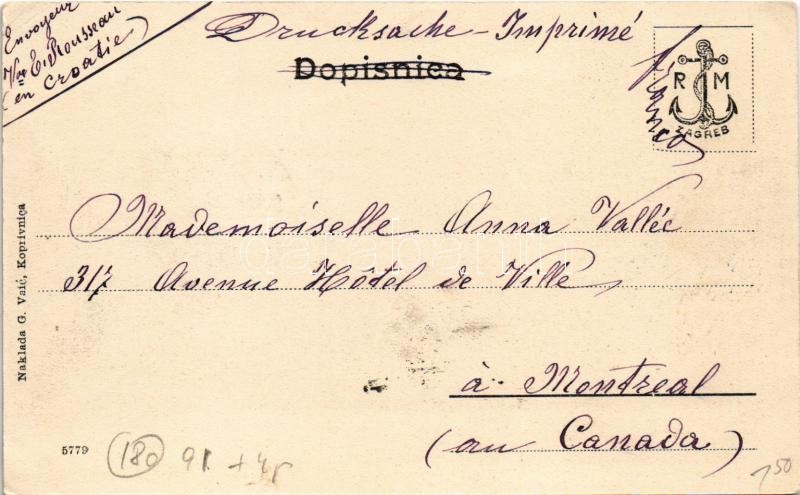 Envoyeur
Vve E. Rousseau
(en Croatie)
Drucksache - Imprimé
Dopisnica
Franco
R M
ZAGREB
Mademoiselle Anna Vallée
317 Avenue Hôtel de Ville
à Montreal
(au Canada)
Naklada G. Vaić, Koprivnica
5779
180 91 + 45
150
darabanth